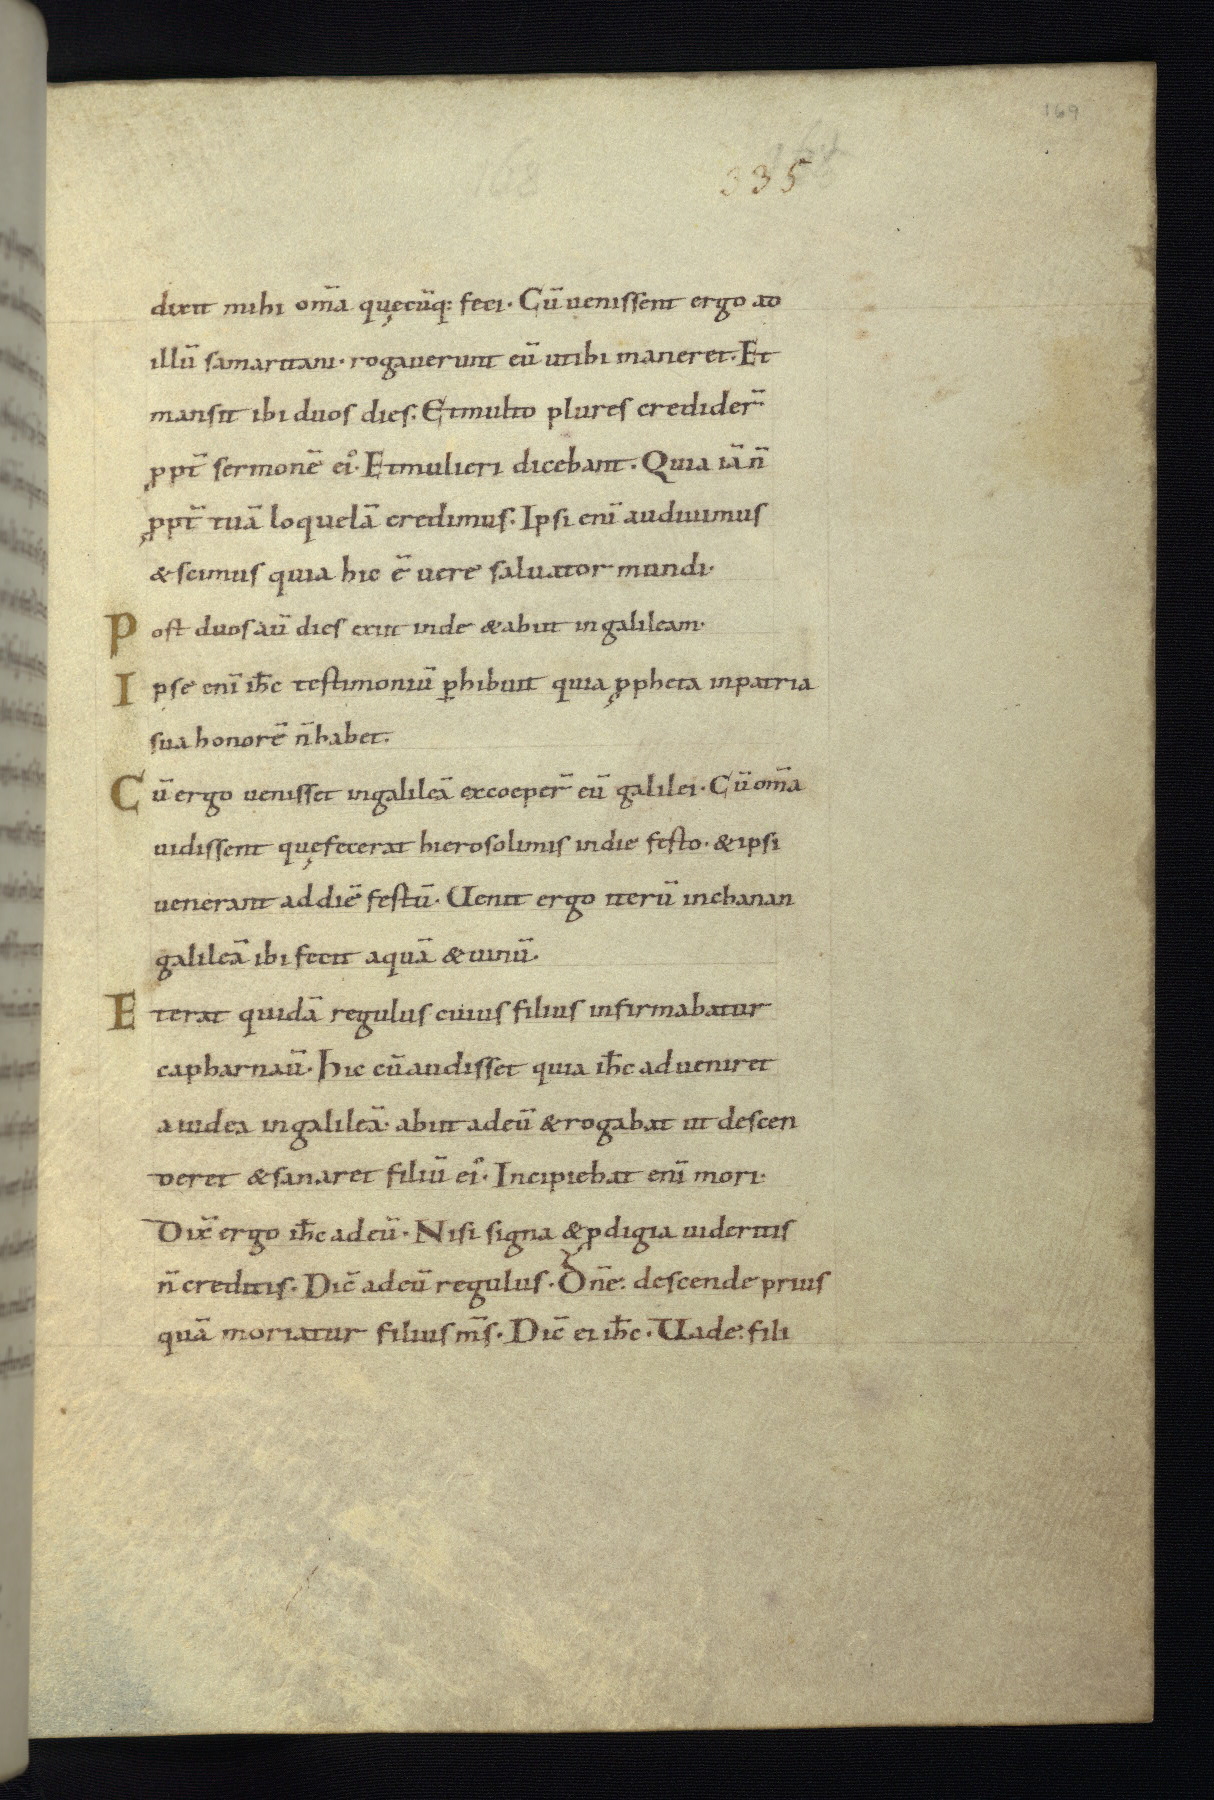 169
335
dixit mihi om̄a quęcūq: feci· Cū uenissent ergo ad
illū samaritani· rogauerunt eū ut ibi maneret· Et
mansit ibi duos dies· Et multo plures credider̄
ꝓpt̄ sermonē ei᾽· Et mulieri dicebant· Quia iā n̄
ꝓpt̄ tuā loquelā credimus· Ipsi enī audiuimus
& scimus quia hic ē uere saluator mundi·
Post duos aū dies exiit inde & abiit in galileam·
Ipse enī ih̄c testimoniū ꝑhibuit quia ꝓpheta in patria
sua honorē n̄ habet·
Cū ergo uenisset in galileā exceoper̄ eū galilei· Cū om̄a
uidissent quę fecerat hierosolimis in die festo· & ipsi
uenerant ad diē festū· Uenit ergo iterū in chanan
galileā ibi fecit aquā & uinū·
Et erat quidā regulus cuius filius infirmabatur
capharnaū· Hic cū audisset quia ih̄c adueniret
a iudea in galileā· abiit ad eū & rogabat ut descen
deret & sanaret filiū ei᾽· Incipiebat enī mori·
Dix̄ ergo ih̄c ad eū· Nisi signa & ꝓdigia uideritis
n̄ creditis· Dic̄ ad eū regulus· Dn̄e: descende prius
quā moriatur filius m̄s· Dic̄ ei ih̄c· Uade: fili